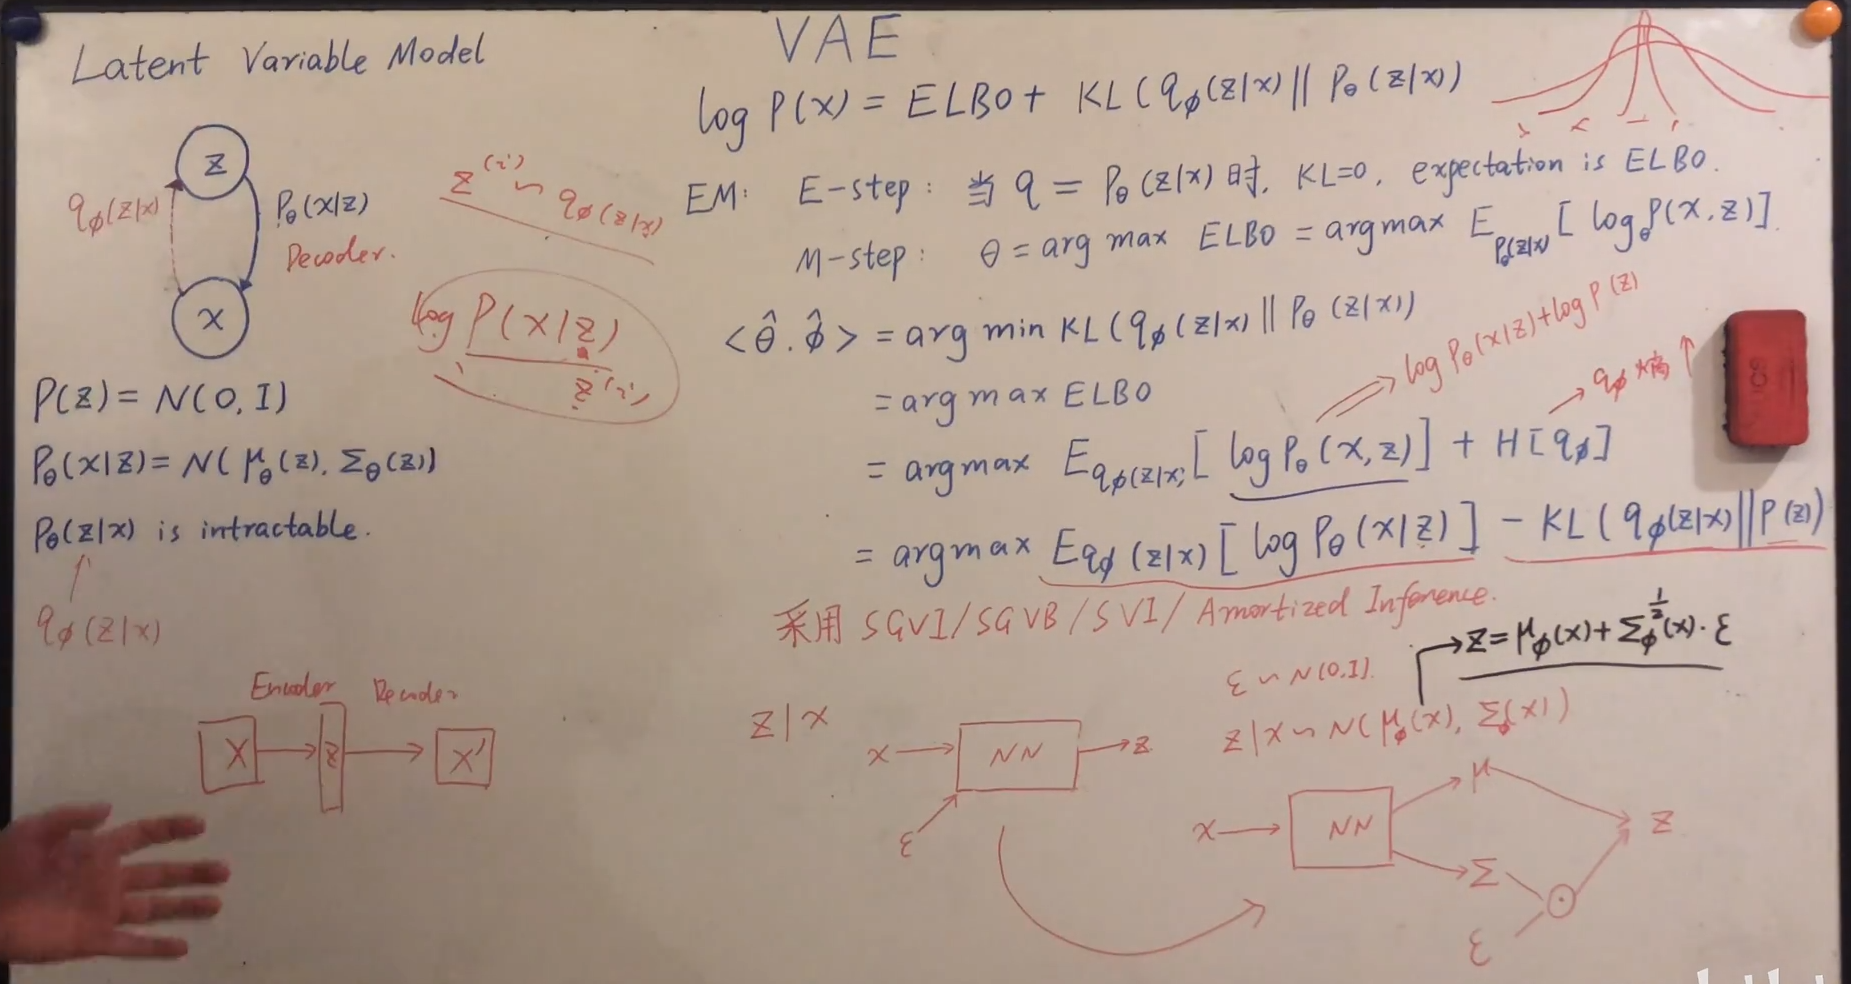 Latent Variable Model
z
q_φ(z|x)
P_θ(x|z)
Decoder.
x
z^(i) ~ q_φ(z|x)
log P(x|z)
z^(i)
P(z) = N(0, I)
P_θ(x|z) = N(μ_θ(z), Σ_θ(z))
P_θ(z|x) is intractable.
q_φ(z|x)
Encoder Decoder
X z X'
VAE
log P(x) = ELBO + KL(q_φ(z|x) || P_θ(z|x))
EM: E-step: 当 q = P_θ(z|x) 时, KL=0, expectation is ELBO.
M-step: θ = arg max ELBO = argmax E_P_θ(z|x) [log P_θ(x, z)].
<θ̂, φ̂> = arg min KL(q_φ(z|x) || P_θ(z|x))
= arg max ELBO
log P_θ(x|z) + log P(z)
q_φ 熵 ↑
= argmax E_q_φ(z|x) [log P_θ(x, z)] + H[q_φ]
= argmax E_q_φ(z|x) [log P_θ(x|z)] - KL(q_φ(z|x) || P(z))
采用 SGVI/SGVB/SVI/Amortized Inference.
z = μ_φ(x) + Σ_φ^(1/2)(x) · ε
ε ~ N(0, I).
z|x ~ N(μ_φ(x), Σ_φ(x))
z|x
x NN z
ε
x NN μ Σ z
ε